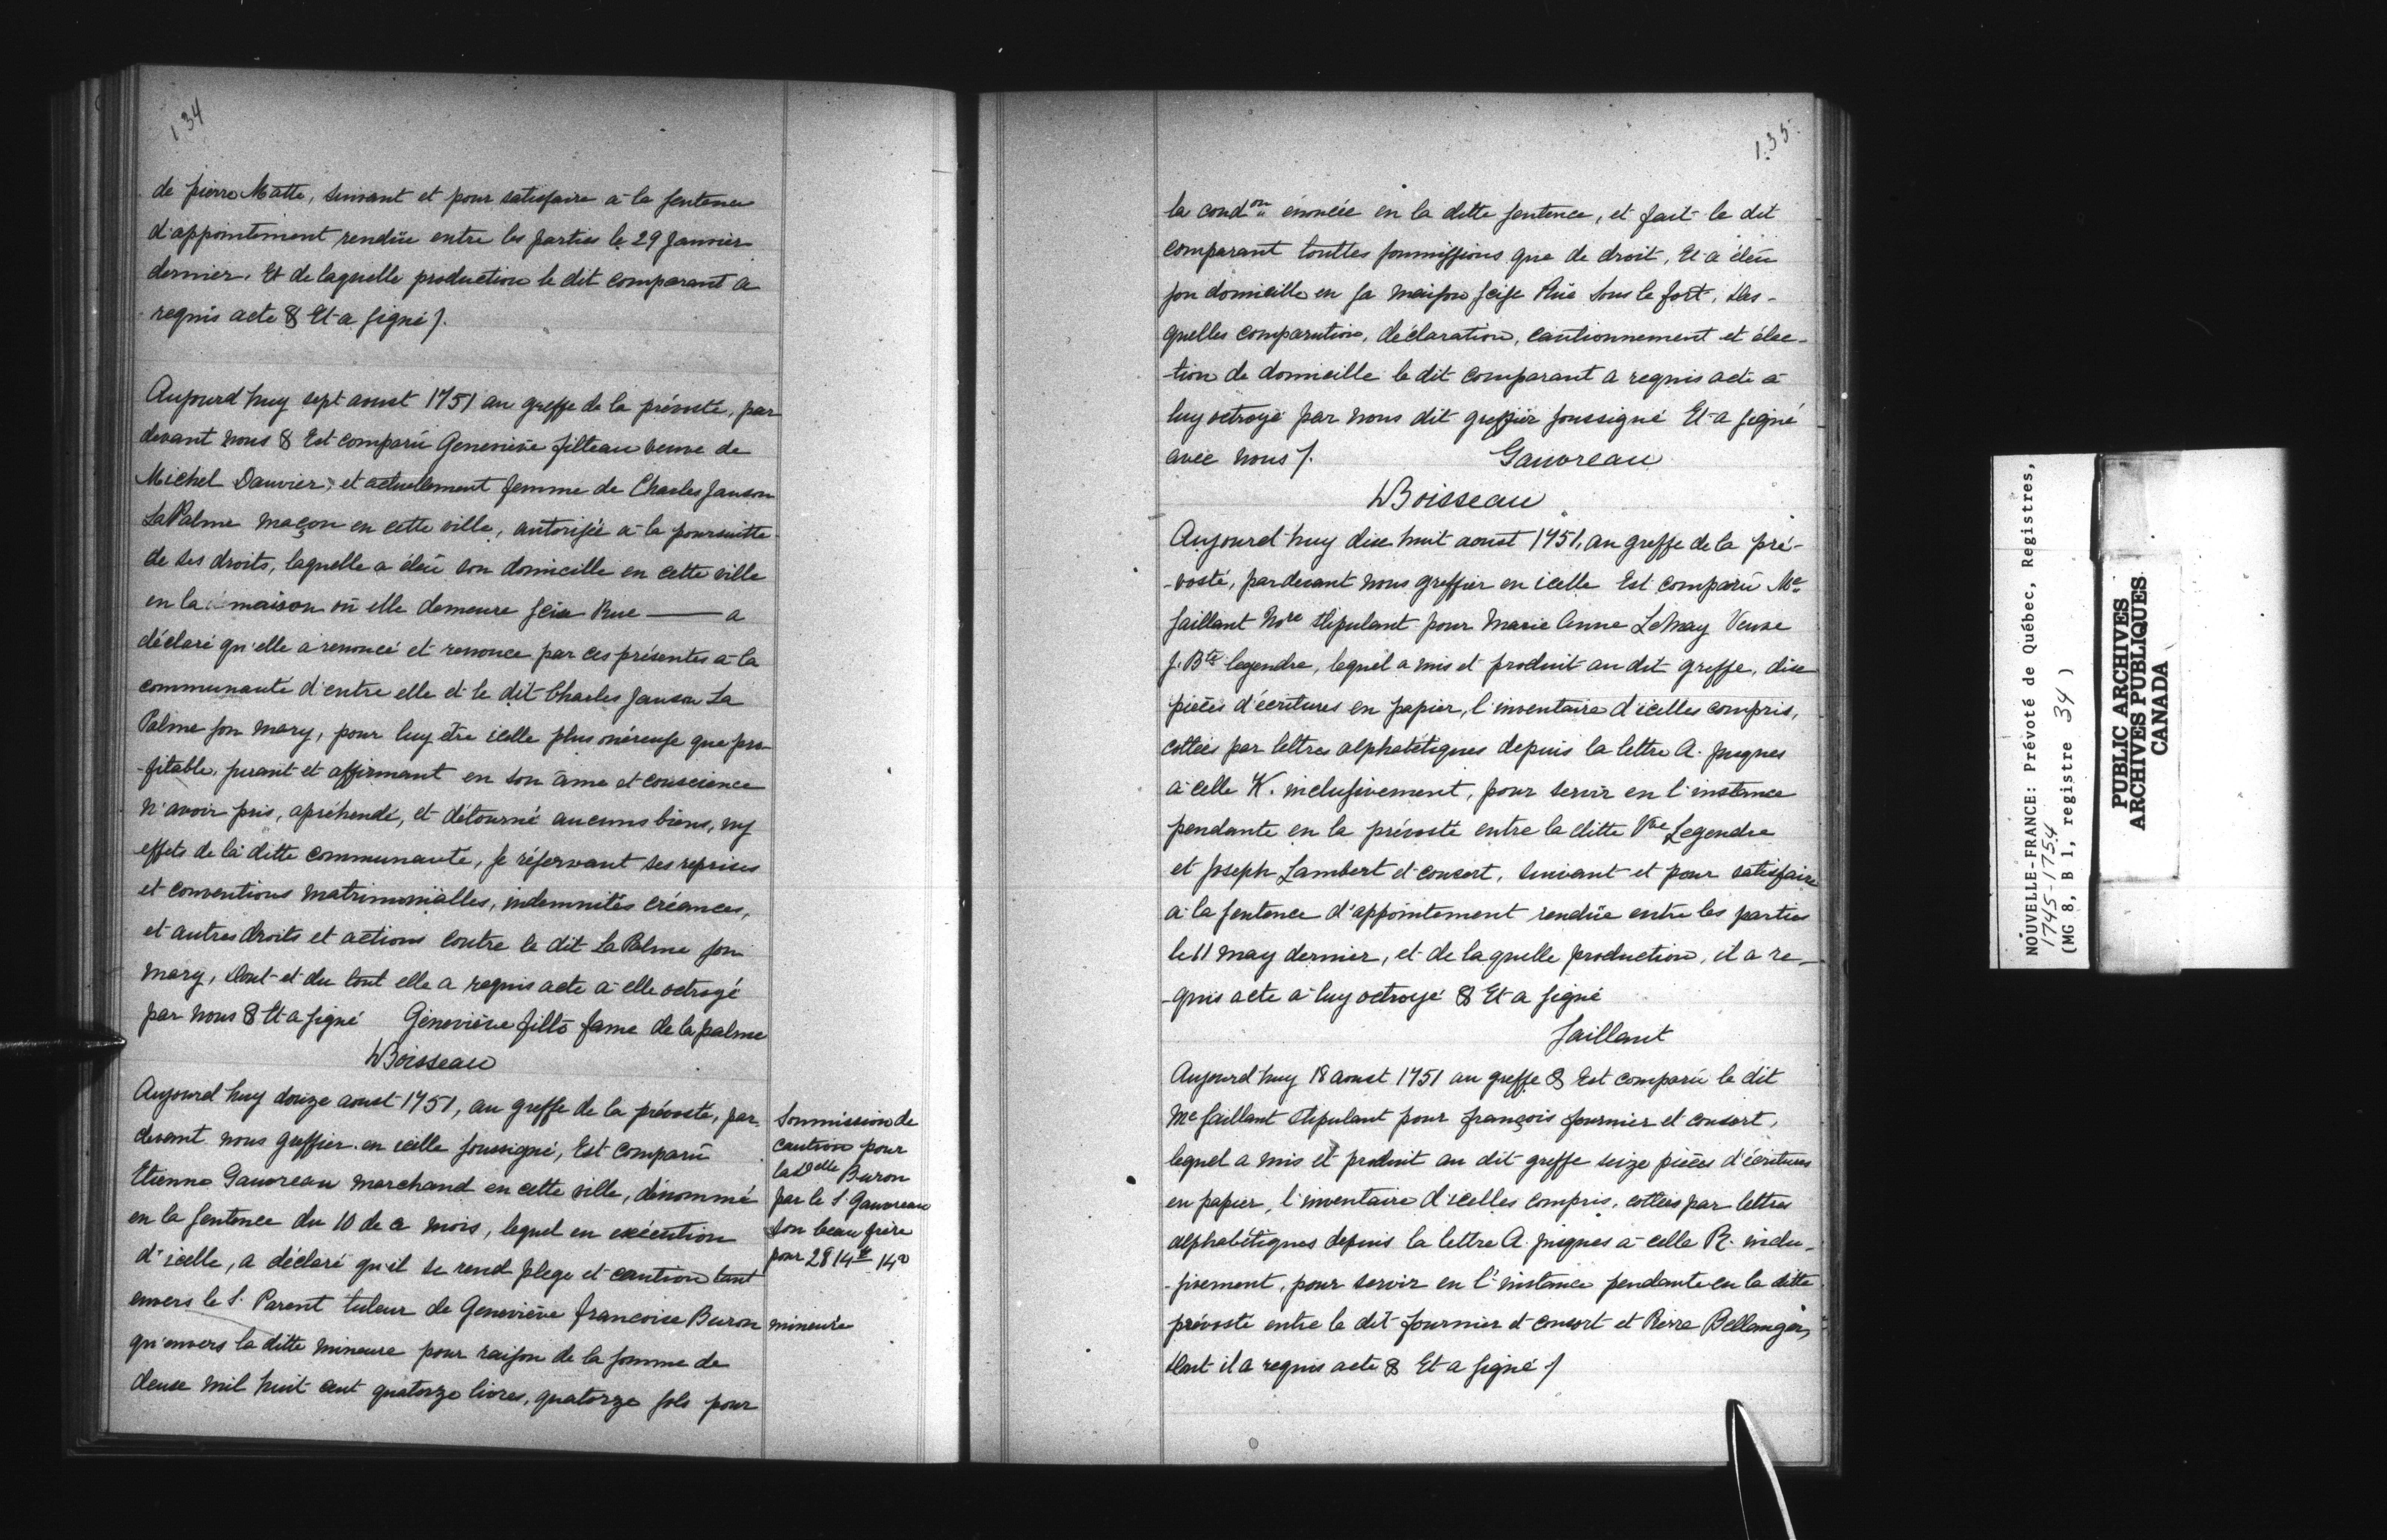 134
de pierre Matte, suivant et pour satisfaire à la sentence
d'appointement rendüe entre les parties le 29 Janvier
dernier. Et de laquelle production le dit comparant a
requis acte & Et a signé /.
Aujourd'huy sept aoust 1751 au greffe de la prévosté, par
devant nous & Est comparü Geneviève filteau veuve de
Michel Dauvier, et actuellement femme de Charles Janson
LaPalme maçon en cette ville, autorisée à la poursuitte
de ses droits, laquelle a éleü son domicille en cette ville
en la maison où elle demeure seise Rue ——— a
déclaré qu'elle a renoncé et renonce par ces présentes à la
communauté d'entre elle et le dit Charles Janson La
Palme son mary, pour luy être icelle plus onéreuse que pro-
-fitable, jurant et affirmant en son âme et conscience
n'avoir pris, apréhendé, et détourné aucuns biens, ny
effets de la ditte communauté, se réservant ses reprises
et conventions matrimonialles, indemnités créances,
et autres droits et actions contre le dit La Palme son
mary, Dont et du tout elle a requis acte à elle octroyé
par nous & Et a signé Geneviève filto fame de la palme
Boisseau
Aujourd'huy douze aoust 1751, au greffe de la prévosté, par
devant nous greffier en icelle soussigné, Est comparü
Etienne Gauvreau marchand en cette ville, dénommé
en la sentence du 10 de ce mois, lequel en exécution
d'icelle, a déclaré qu'il se rend plege et caution tant
envers le S. Parent tuteur de Geneviève françoise Buron
qu'envers la ditte mineure pour raison de la somme de
deux mil huit cent quatorze livres, quatorze sols pour
Sommission de
caution pour
la delle Buron
par le S. Gauvreau
son beau frère
pour 2814 lt 14 s
mineure
135
la condon énoncée en la ditte sentence, et fait le dit
comparant touttes soumissions que de droit, Et a éleü
son domicille en sa maison seise Rüe Sous le fort, Des-
quelles comparution, déclaration, cautionnement et élec-
-tion de domicille le dit comparant a requis acte à
luy octroyé par nous dit greffier soussigné Et a signé
avec nous /. Gauvreau
Boisseau
Aujourd'huy dix huit aoust 1751, au greffe de la pré-
-vosté, pardevant nous greffier en icelle Est comparü Me
Saillant Nore stipulant pour Marie Anne LeMay Veuve
J. Bte legendre, lequel a mis et produit au dit greffe, dix
pièces d'écritures en papier, l'inventaire d'icelles compris,
cottées par lettres alphabétiques depuis la lettre A. jusques
à celle K. inclusivement, pour servir en l'instance
pendante en la prévosté entre la ditte Vve Legendre
et Joseph Lambert et consort, suivant et pour satisfaire
à la sentence d'appointement rendüe entre les parties
le 11 may dernier, et de laquelle production, il a re-
-quis acte à luy octroyé & Et a signé
Saillant
Aujourd'huy 18 aoust 1751 au greffe & Est comparü le dit
Me Saillant stipulant pour françois fournier et consort,
lequel a mis et produit au dit greffe seize pièces d'écritures
en papier, l'inventaire d'icelles compris, cottées par lettres
alphabétiques depuis la lettre A. jusques à celle R. inclu-
-sivement, pour servir en l'instance pendante en la ditte
prévosté entre le dit fournier et consort et Pierre Bellanger,
Dont il a requis acte & Et a signé /
NOUVELLE-FRANCE: Prévoté de Québec, Registres,
1745-1754
(MG 8, B 1, registre 34 )
PUBLIC ARCHIVES
ARCHIVES PUBLIQUES
CANADA